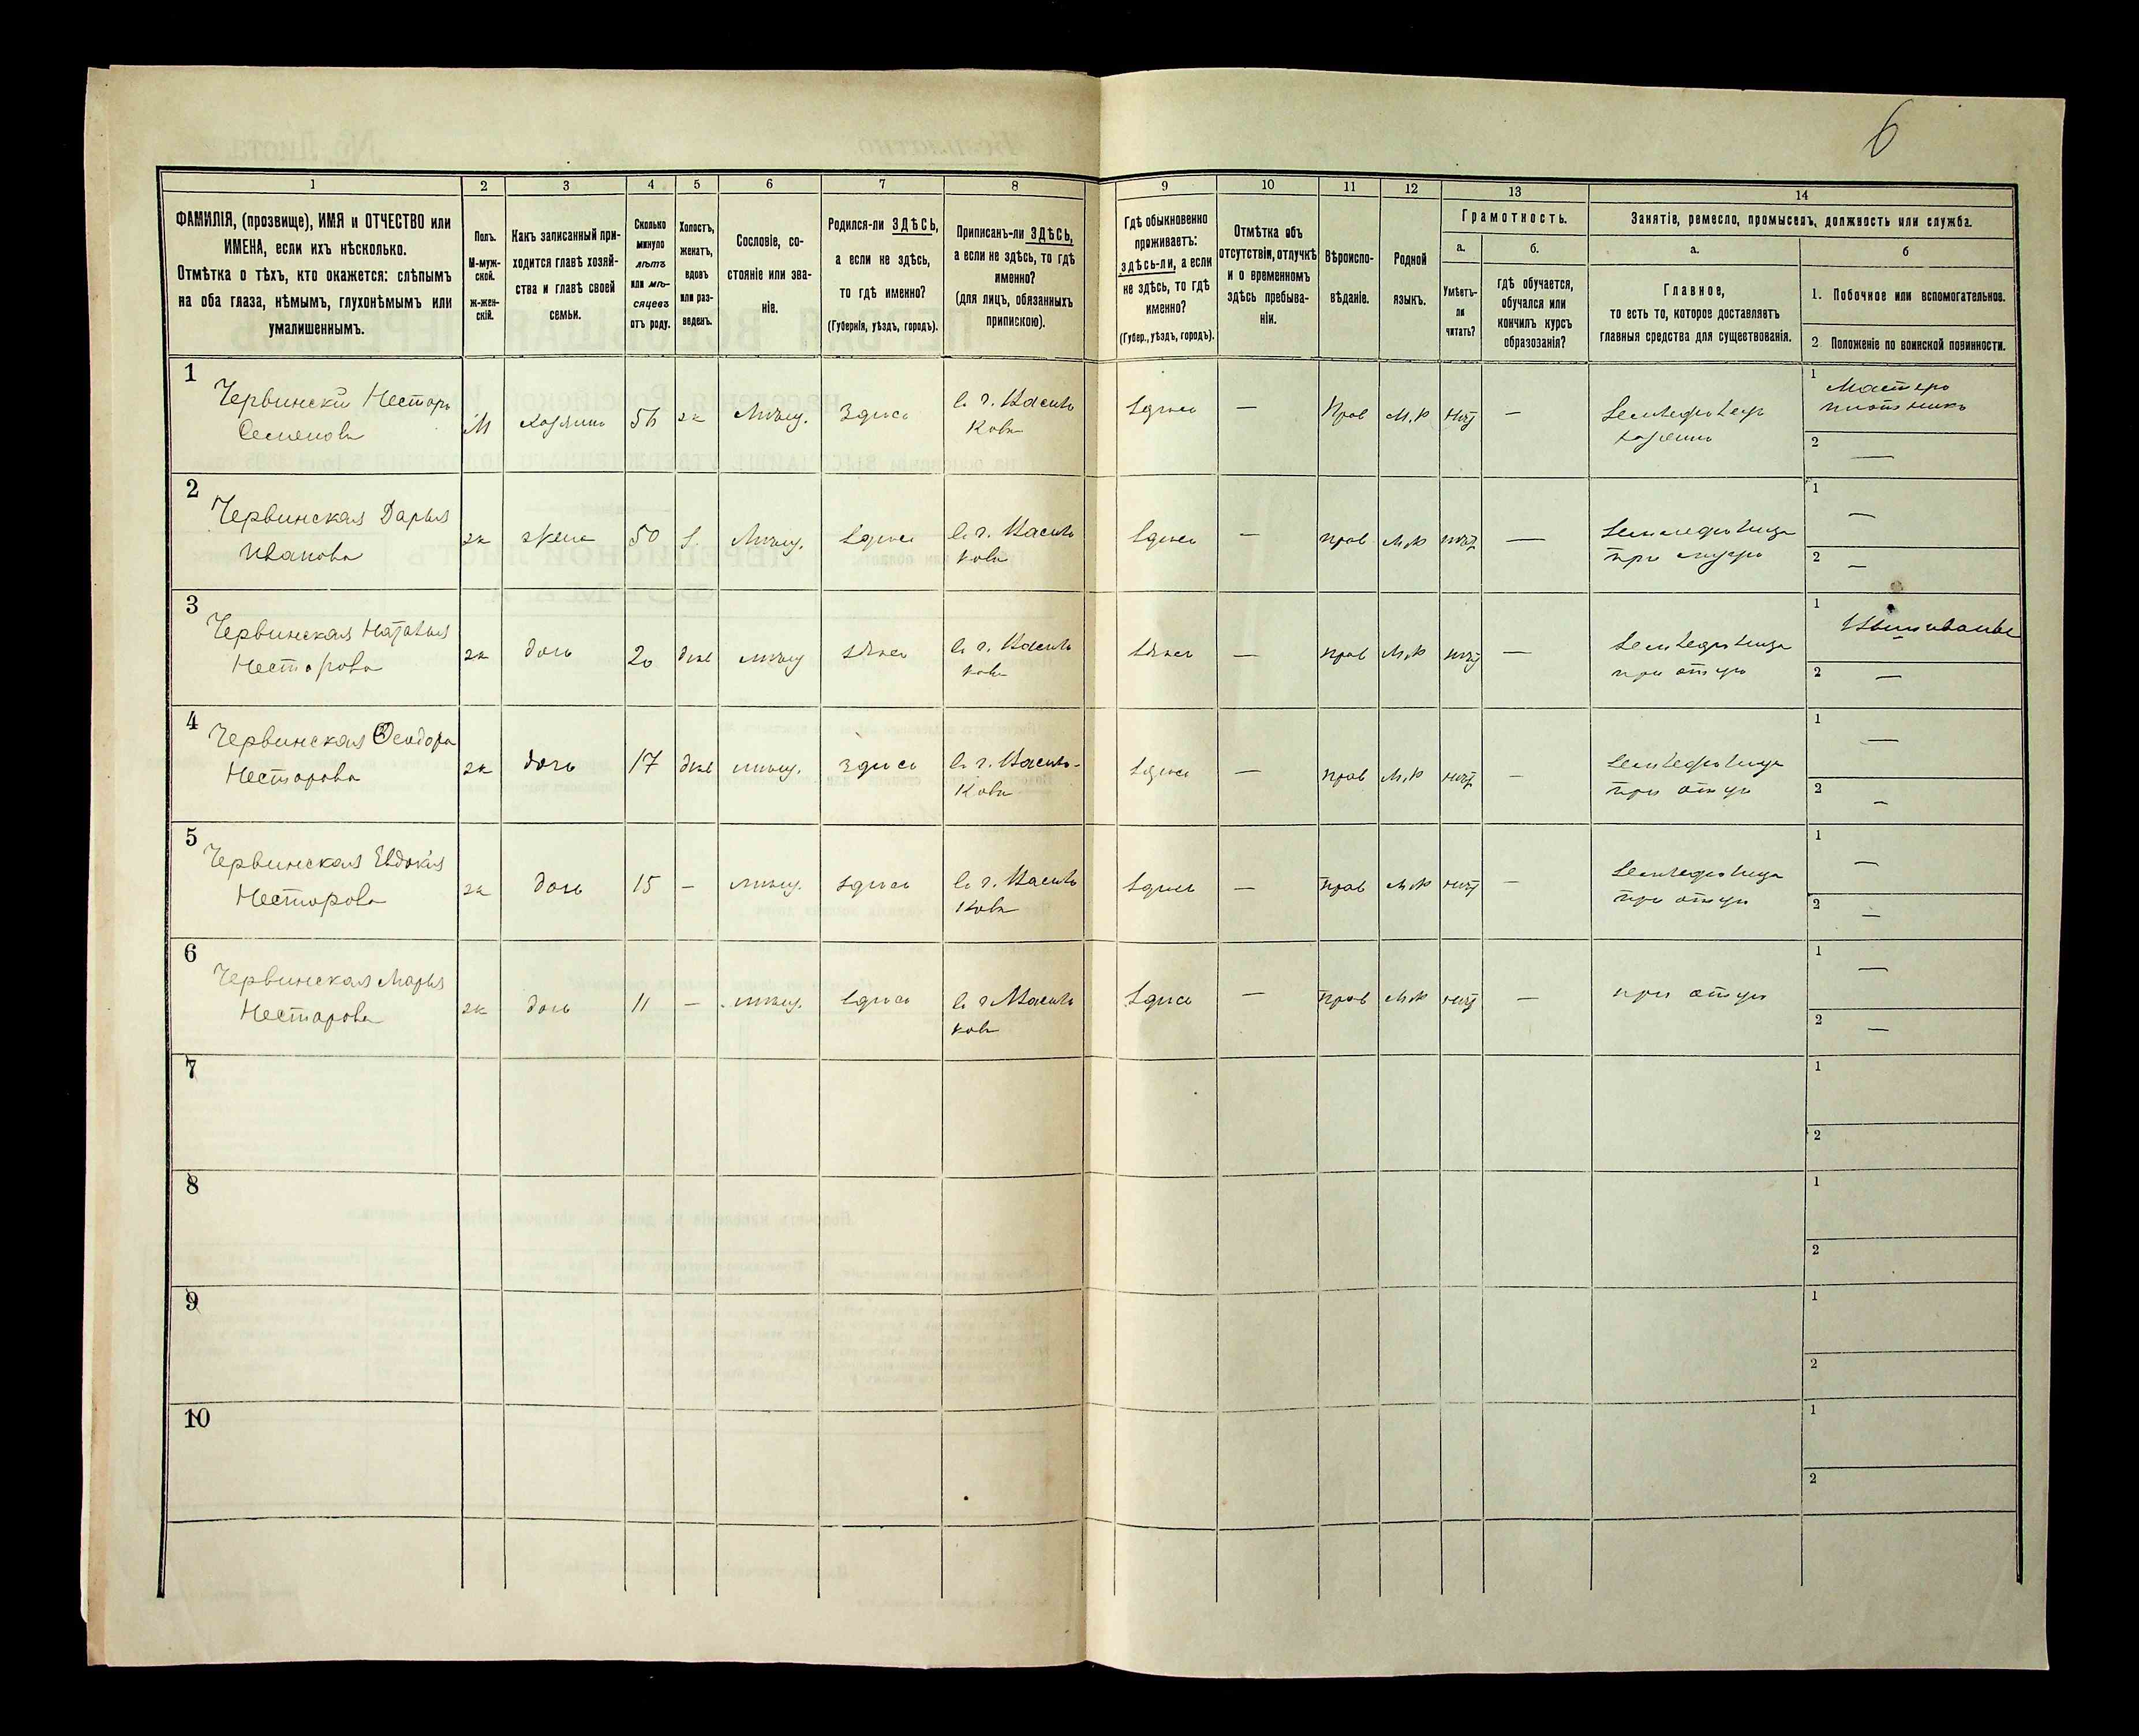 6
1 2 3 4 5 6 7 8 9 10 11 12 13 14
ФАМИЛІЯ, (прозвище), ИМЯ и ОТЧЕСТВО или
ИМЕНА, если ихъ нѣсколько.
Отмѣтка о тѣхъ, кто окажется: слѣпымъ
на оба глаза, нѣмымъ, глухонѣмымъ или
умалишеннымъ.
Полъ.
М-муж-
ской.
ж-жен-
скій.
Какъ записанный при-
ходится главѣ хозяй-
ства и главѣ своей
семьи.
Сколько
минуло
лѣтъ
или мѣ-
сяцевъ
отъ роду.
Холостъ,
женатъ,
вдовъ
или раз-
веденъ.
Сословіе, со-
стояніе или зва-
ніе.
Родился-ли ЗДѢСЬ,
а если не здѣсь,
то гдѣ именно?
(Губернія, уѣздъ, городъ).
Приписанъ-ли ЗДѢСЬ,
а если не здѣсь, то гдѣ
именно?
(для лицъ, обязанныхъ
припискою).
Гдѣ обыкновенно
проживаетъ:
здѣсь-ли, а если
не здѣсь, то гдѣ
именно?
(Губер., уѣздъ, городъ).
Отмѣтка объ
отсутствіи, отлучкѣ
и о временномъ
здѣсь пребыва-
ніи.
Вѣроиспо-
вѣданіе.
Родной
языкъ.
Грамотность.
а.
Умѣетъ-
ли
читать?
б.
гдѣ обучается,
обучался или
кончилъ курсъ
образованія?
Занятіе, ремесло, промыселъ, должность или служба.
а.
Главное,
то есть то, которое доставляетъ
главныя средства для существованія.
б
1. Побочное или вспомогательное.
2 Положеніе по воинской повинности.
1 Червинскій Несторъ М хозяинъ 56 ж Мѣщ. Здѣсь в г. Василь Здѣсь — Прав М.Р нѣт — Земледѣлецъ 1 Мастеръ
Семеновъ кова хозяинъ плотникъ
2 —
2 Червинская Дарья ж жена 50 з. Мѣщ. Здѣсь в г. Василь Здѣсь — прав М.Р нѣт — Земледѣлица 1 —
Иванова кова при мужѣ 2 —
3 Червинская Наталья ж дочь 20 дѣв мѣщ здѣсь в г. Василь здѣсь — прав М.Р нѣт — Земледѣлица 1 Вышиванье
Несторова кова при отцѣ 2 —
4 Червинская Ѳеодора ж дочь 17 дѣв мѣщ. здѣсь в г. Василь- Здѣсь — прав М.Р нѣт — Земледѣлица 1 —
Несторова кова при отцѣ 2 —
5 Червинская Евдокія ж дочь 15 — мѣщ. здѣсь в г. Василь Здѣсь — прав М.Р нѣт — Земледѣлица 1 —
Несторова кова при отцѣ 2 —
6 Червинская Марья ж дочь 11 — мѣщ. Здѣсь в г Василь Здѣсь — прав М.Р нѣт — при отцѣ 1 —
Несторова кова 2 —
7 1
2
8 1
2
9 1
2
10 1
2